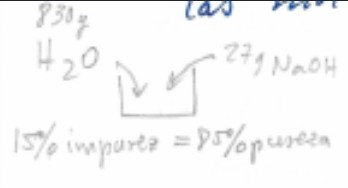 830g las
H2O 27g NaOH
15% impurez = 85% pureza